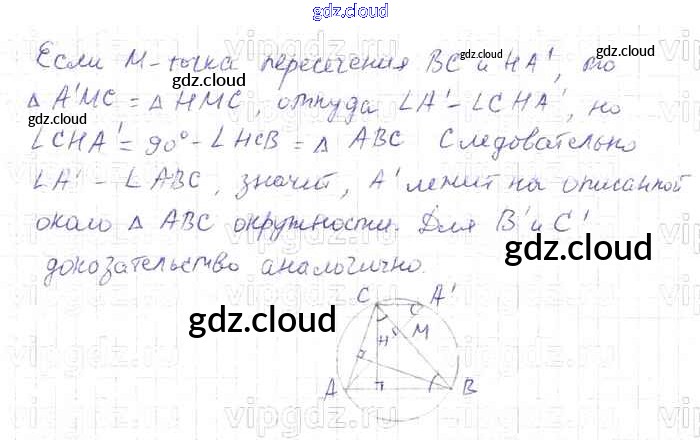 gdz.cloud
Если M - точка пересечения BC и HA', то
△ A'MC = △ HMC, откуда ∠A' - ∠CHA', но
∠CHA' = 90° - ∠HCB = △ ABC Следовательно
∠A' - ∠ABC, значит, A' лежит на описанной
около △ ABC окружности. Для B' и C'
доказательство аналогично.
gdz.cloud
gdz.cloud
gdz.cloud
gdz.cloud
gdz.cloud
C A'
H M
A B